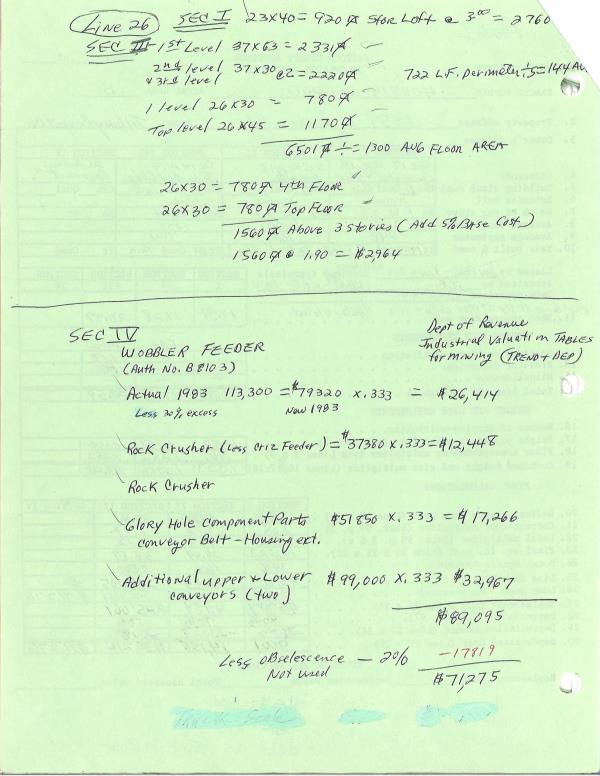 Line 26 SEC I 23x40 = 920 ⌀ Stor Loft @ 3.00 = 2760
SEC III - 1st Level 37x63 = 2331⌀
2nd level & 3rd level 37x30 @2 = 2220⌀ 722 L.F. Perimeter ÷5 = 144 Av
1 level 26x30 = 780⌀
Top level 26x45 = 1170⌀
6501⌀ ÷ = 1300 AVG FLOOR AREA
26x30 = 780⌀ 4th Floor
26x30 = 780⌀ Top Floor
1560⌀ Above 3 Stories (Add 5% Base Cost)
1560⌀ @ 1.90 = $2,964
SEC IV
Dept of Revenue
Industrial Valuation TABLES
for mining (TREND & DEP)
WOBBLER FEEDER
(Auth No. B8103)
Actual 1983 113,300 = $79320 x .333 = $26,414
Less 30% excess Now 1983
Rock Crusher (Less Criz Feeder) = $37380 x .333 = $12,448
Rock Crusher
Glory Hole Component Parts $51850 x .333 = $17,266
conveyor Belt - Housing ext.
Additional upper & Lower $99,000 x .333 $32,967
conveyors (two)
$89,095
Less obselescence - 20% -17819
Not used $71,275
Truck Scale